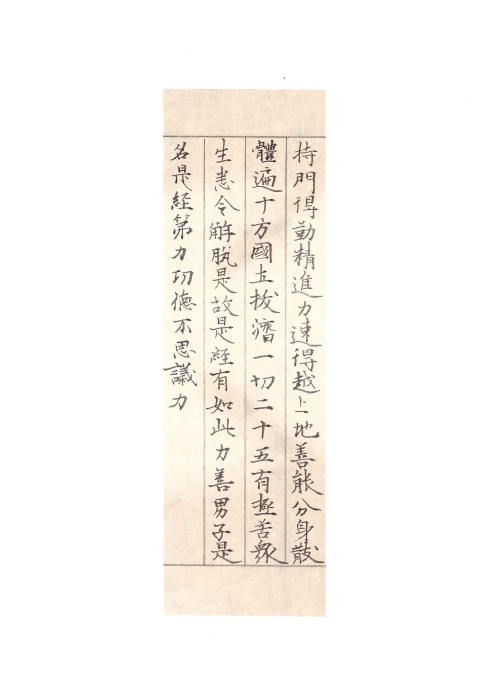 持門得勤精進力速得越上地善能分身散
體遍十方國土拔濟一切二十五有極苦衆
生悉令解脱是故是經有如此力善男子是
名是經第力功德不思議力